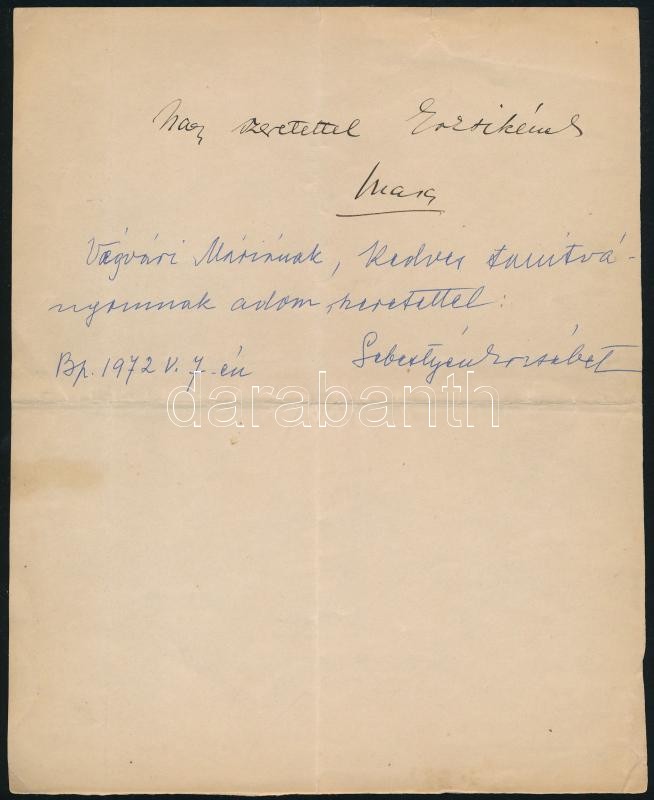 Nagy szeretettel Erzsikének
Vágvári Máriának, kedves tanítvá-
nyomnak adom, szeretettel:
Bp. 1972 V. 7.-én Sebestyén Erzsébet
darabanth